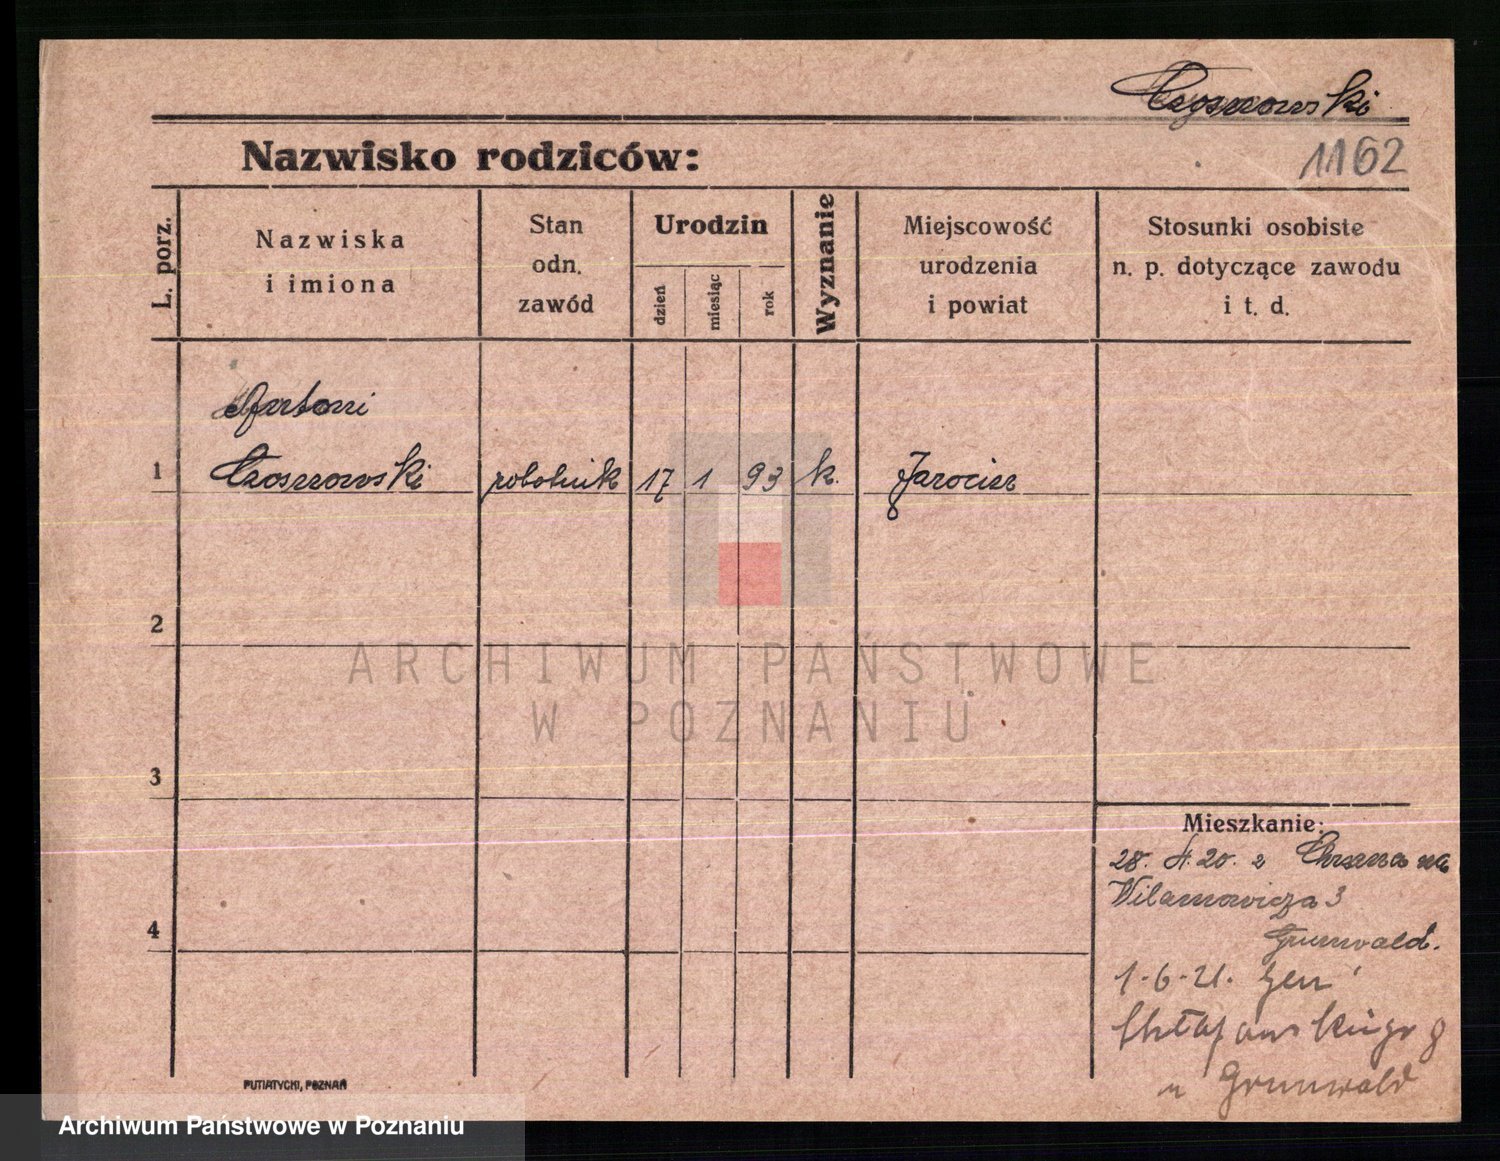 Czosnowski
Nazwisko rodziców:
1162
L. porz.
Nazwiska
i imiona
Stan
odn.
zawód
Urodzin
dzień
miesiąc
rok
Wyznanie
Miejscowość
urodzenia
i powiat
Stosunki osobiste
n. p. dotyczące zawodu
i t. d.
Antoni
1 Czosnowski robotnik 17 1 93 k. Jarocin
2
ARCHIWUM PAŃSTWOWE
W POZNANIU
3
Mieszkanie:
28. 4. 20. z na
Wilamowicza 3
4
Grunwald.
1-6-21. Gen
Chłapowskiego 8
Grunwald
PUTIATYCKI, POZNAŃ
Archiwum Państwowe w Poznaniu